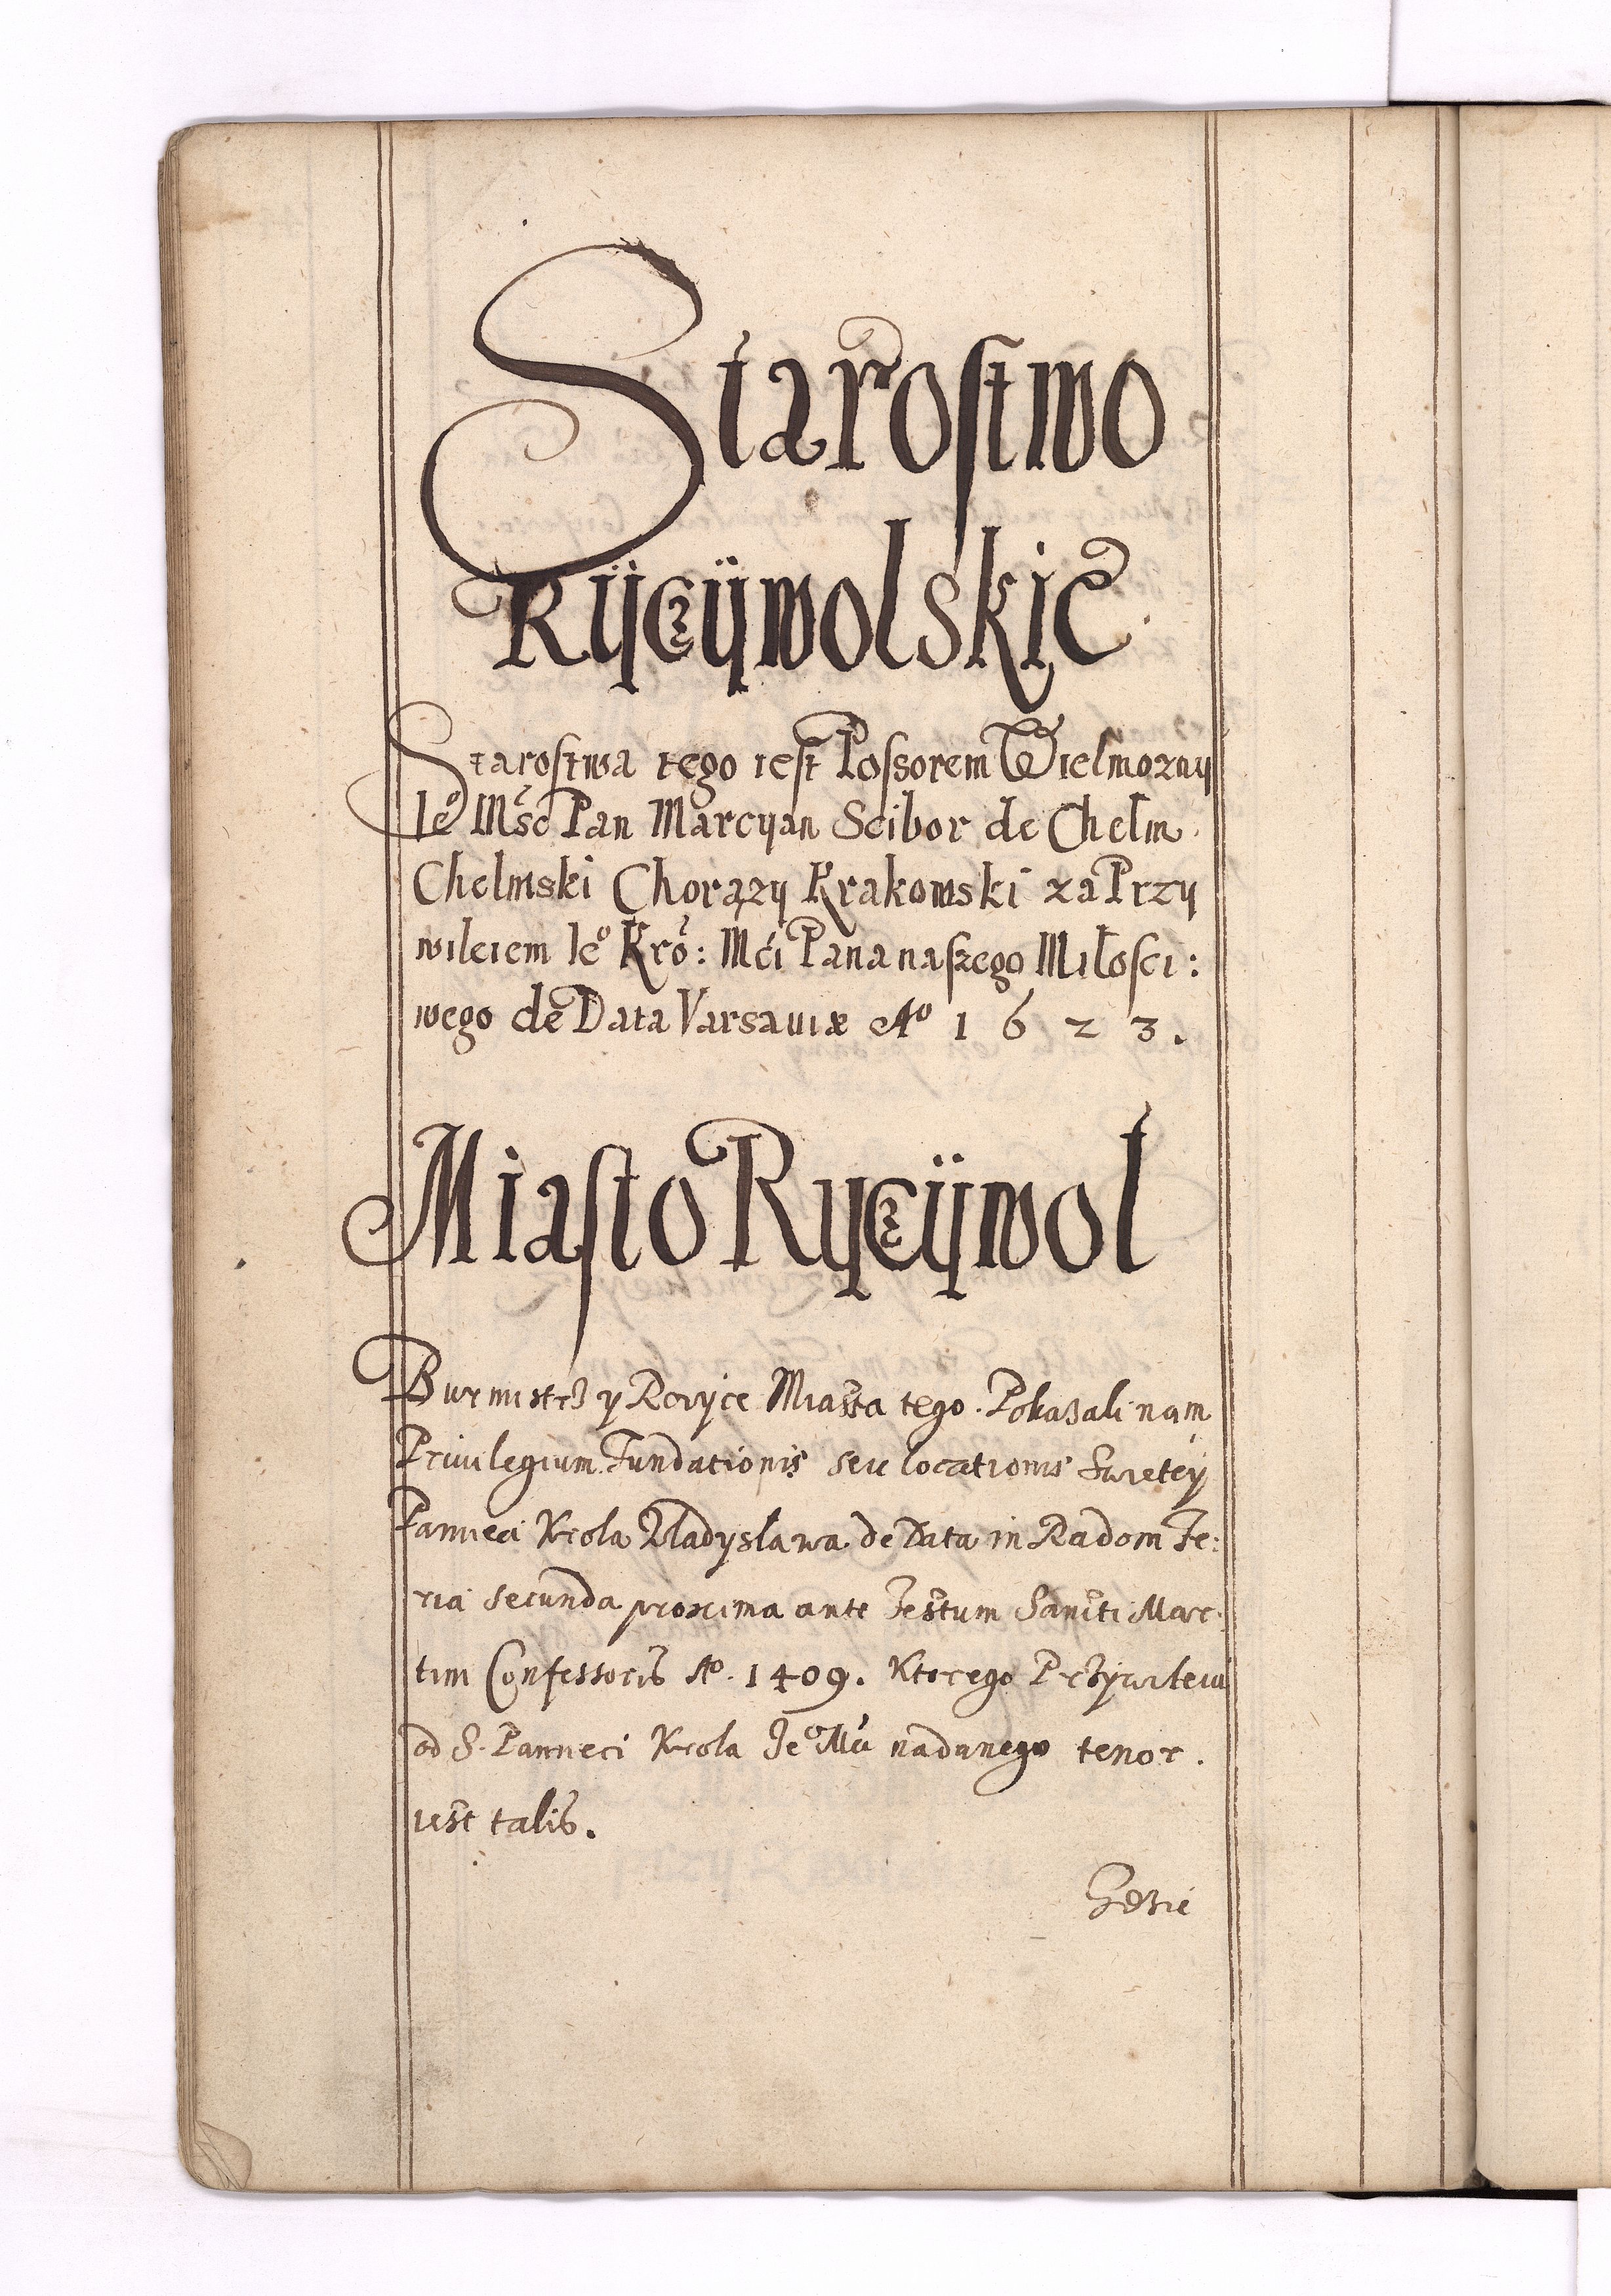 Starostwo
Ryczywolskie
Starostwa tego iest Possorem Wielmozny
Ieº Mśc Pan Marcyan Scibor de Chełm
Chełmski Chorązy Krakowski za Przy
wileiem Ieº Kró: Mći Pana naszego Miłosci:
wego de Data Varsauiæ Aº 1623.
Miasto Ryczywol
Burmistrz y Rayce Miasta tego. Pokazali nam
Priuilegium Fundationis seu locationis Swietey
Pamieci Krola Wladysława de Data in Radom Fe:
ria secunda proxima ante Festum Sancti Mar:
tini Confessoris Aº. 1409. Ktorego Przywileiu
od S. Pamieci Krola Jeº Mći nadanego tenor.
iest talis.